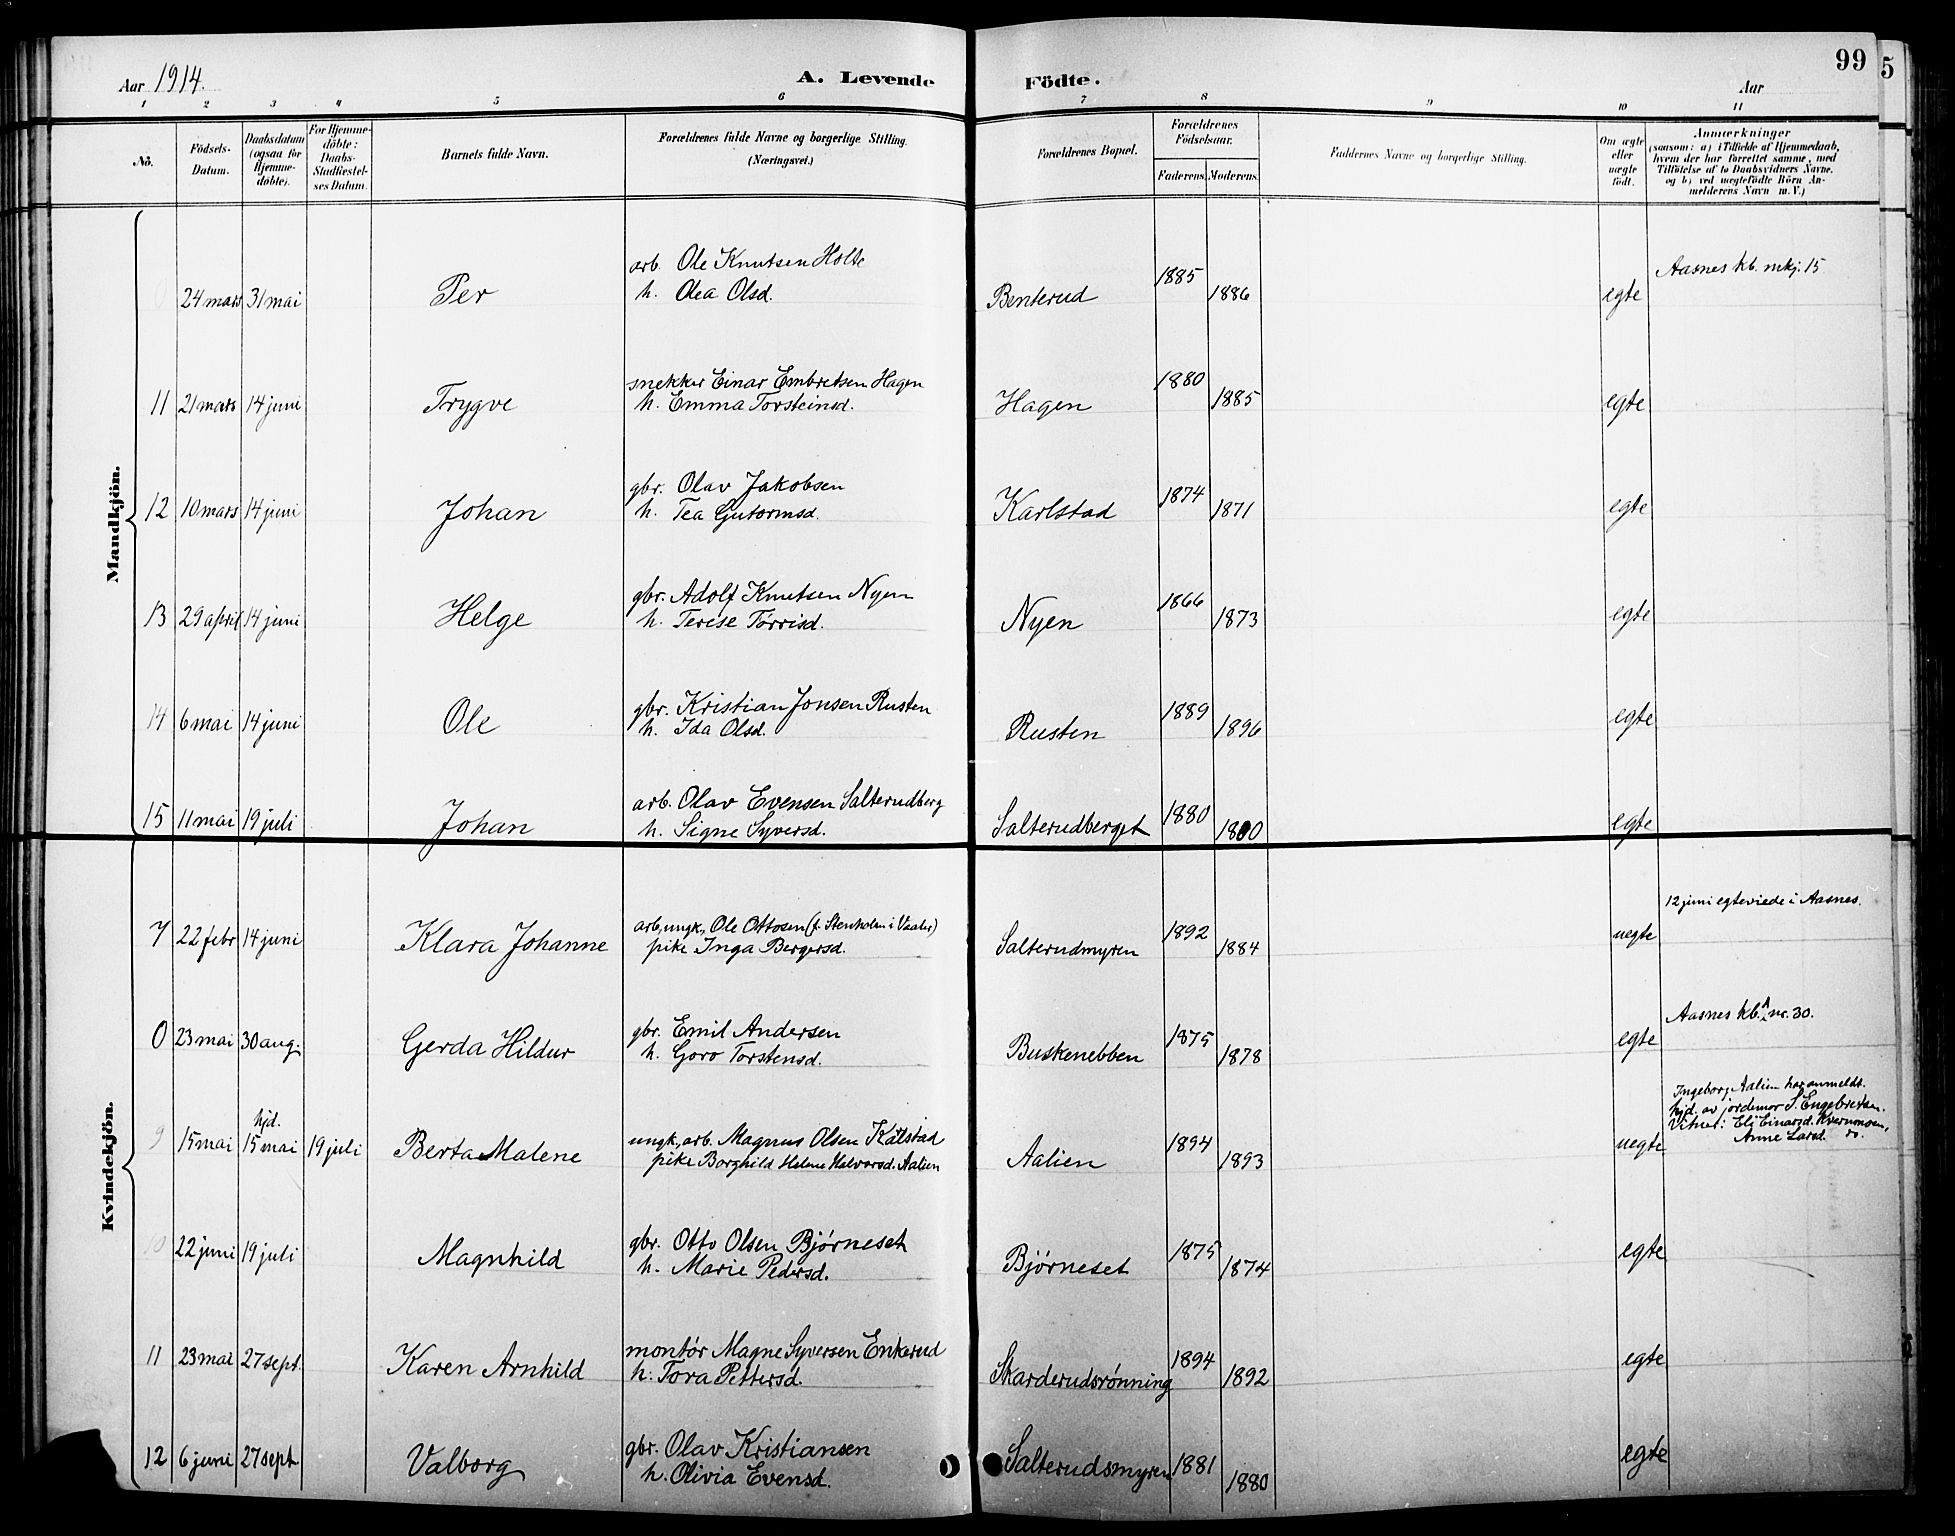 Aar 1914.
A. Levende Födte.
Aar
99
5
1 2 3 4 5 6 7 8 9 10 11
No.
Födsels-Datum.
Daabsdatum (ogsaa for Hjemme-döbte).
For Hjemme-döbte: Daabs-Stadfæstel-ses Datum.
Barnets fulde Navn.
Forældrenes fulde Navne og borgerlige Stilling. (Næringsvei.)
Forældrenes Bopæl.
Forældrenes Födselsaar.
Faderens. Moderens.
Faddernes Navne og borgerlige Stilling.
Om ægte eller uægte födt.
Anmærkninger
(saasom: a) i Tilfælde af Hjemmedaab,
hvem der har forrettet samme, med
Tilföielse af to Daabsvidners Navne.
og b) ved uægtefödte Börn An-
melderens Navn m. V.)
Mandkjön.
arb. Ole Knutsen Holte 1885 Aasnes kb. mkj. 15
0 24 mars 31 mai Per h. Olea Olsd. Benterud 1886 egte
snekker Einar Embretsen Hagen 1880
11 21 mars 14 juni Trygve h. Emma Torsteinsd. Hagen 1885 egte
gbr. Olav Jakobsen 1874
12 10 mars 14 juni Johan h. Tea Gutormsd. Karlstad 1871 egte
gbr. Adolf Knutsen Nyen 1866
13 29 april 14 juni Helge h. Terese Tørrisd. Nyen 1873 egte
gbr. Kristian Jonsen Rusten 1889
14 6 mai 14 juni Ole h. Ida Olsd. Rusten 1896 egte
arb. Olav Evensen Salterudberg 1880
15 11 mai 19 juli Johan h. Signe Syversd. Salterudberget 1880 egte
Kvindekjön.
12 juni egteviede i Aasnes.
arb, ungk, Ole Ottosen (f. Stenholen i Vaaler) 1892
7 22 febr 14 juni Klara Johanne pike Inga Bergersd. Salterudmyren 1884 uegte
gbr. Emil Andersen 1875 Aasnes kb. A nr. 30.
0 23 mai 30 aug. Gerda Hildur h. Goro Torstensd. Buskenebben 1878 egte
Ingeborg Aalien har anmeldt.
hjd. av jordemor S. Engebretsen.
Vitner: Eli Einarsd. Kvernmoen,
Anne Larsd. do.
hjd.
ungk, arb. Magnus Olsen Kalstad 1894
9 15 mai 15 mai 19 juli Berta Malene pike Borghild Helene Halvorsd. Aalien Aalien 1893 uegte
gbr. Otto Olsen Bjørneset 1875
10 22 juni 19 juli Magnhild h. Marie Pedersd. Bjørneset 1874 egte
montør Magne Syversen Enkerud 1894
11 23 mai 27 sept. Karen Arnhild h. Tora Pettersd. Skarderudsrønning 1892 egte
gbr. Olav Kristiansen 1881
12 6 juni 27 sept Valborg h. Olivia Evensd. Salterudsmyren 1880 egte